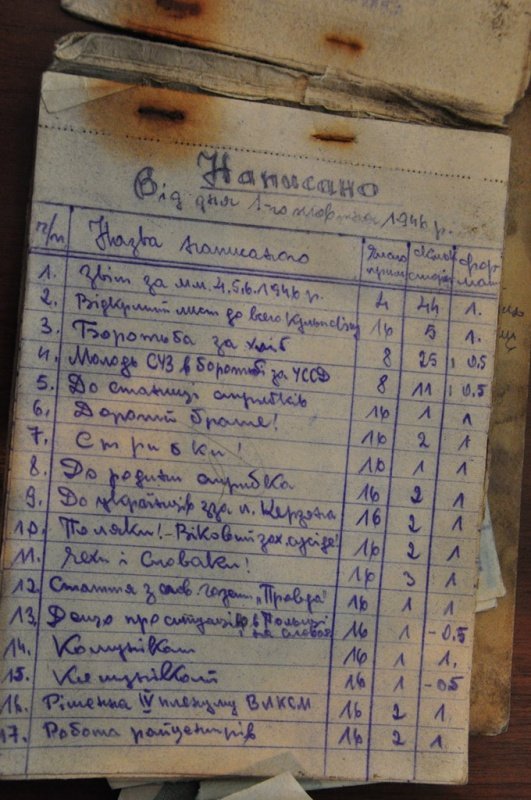 Написано
Від дня 1-го жовтня 1946 р.
ч/п Назва написаного
1. Звіт за м.м. 4.5.6.1946 р. 4 44 1.
2. Відкритий лист до всего 16 5 1.
3. Боротьба за хліб 8 25 0.5
4. Молодь СУЗ в боротьбі за УССД 8 11 0.5
5. До станиці стрибків 16 1 1
6. Дорогий брате! 16 2 1
7. Стрибки! 16 1 1
8. До родини стрибка 16 2 1
9. До українців зза л. Керзона 16 2 1
10. Поляки! - Віковий сусіде! 16 2 1
11. Чехи і Словаки! 16 3 1
12. Стаття з газети "Правда" 16 1 1
13. Дещо про ситуацію в Польщі 16 1 - 0.5
і на
14. Комунікат 16 1 1.
15. Комунікат 16 1 - 05
16. Рішення IV пленуму ВЛКСМ 16 2 1
17. Робота райцентрів 16 2 1